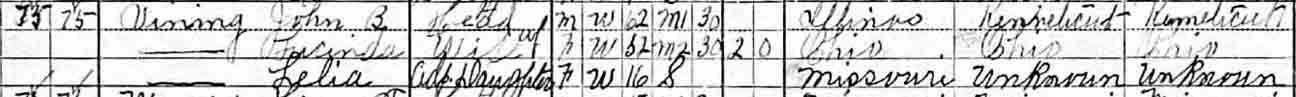 75 75 Vining John B Head M W 62 M1 30 Illinois Kennelicut Kennelicut
—— Lucinda Wife F W 52 M2 30 2 0 Ohio Ohio Ohio
—— Lelia Adp Daughter F W 16 S Missouri Unknown Unknown